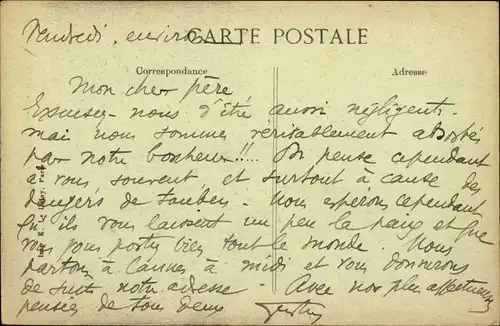 Vendredi, environ
CARTE POSTALE
Correspondance
Adresse
Mon cher père
Excusez-nous d'être aussi négligents
mai nous sommes véritablement absorbés
par notre bonheur!!.... On pense cependant
à vous souvent et surtout à cause des
dangers de Nous espérons cependant
qu'ils vous laissent un peu la paix et que
vous vous portez bien tout le monde. Nous
partons à Cannes à midi et vous donnerons
de suite notre adresse. Avec nos plus affectueuses
pensées de tous deux